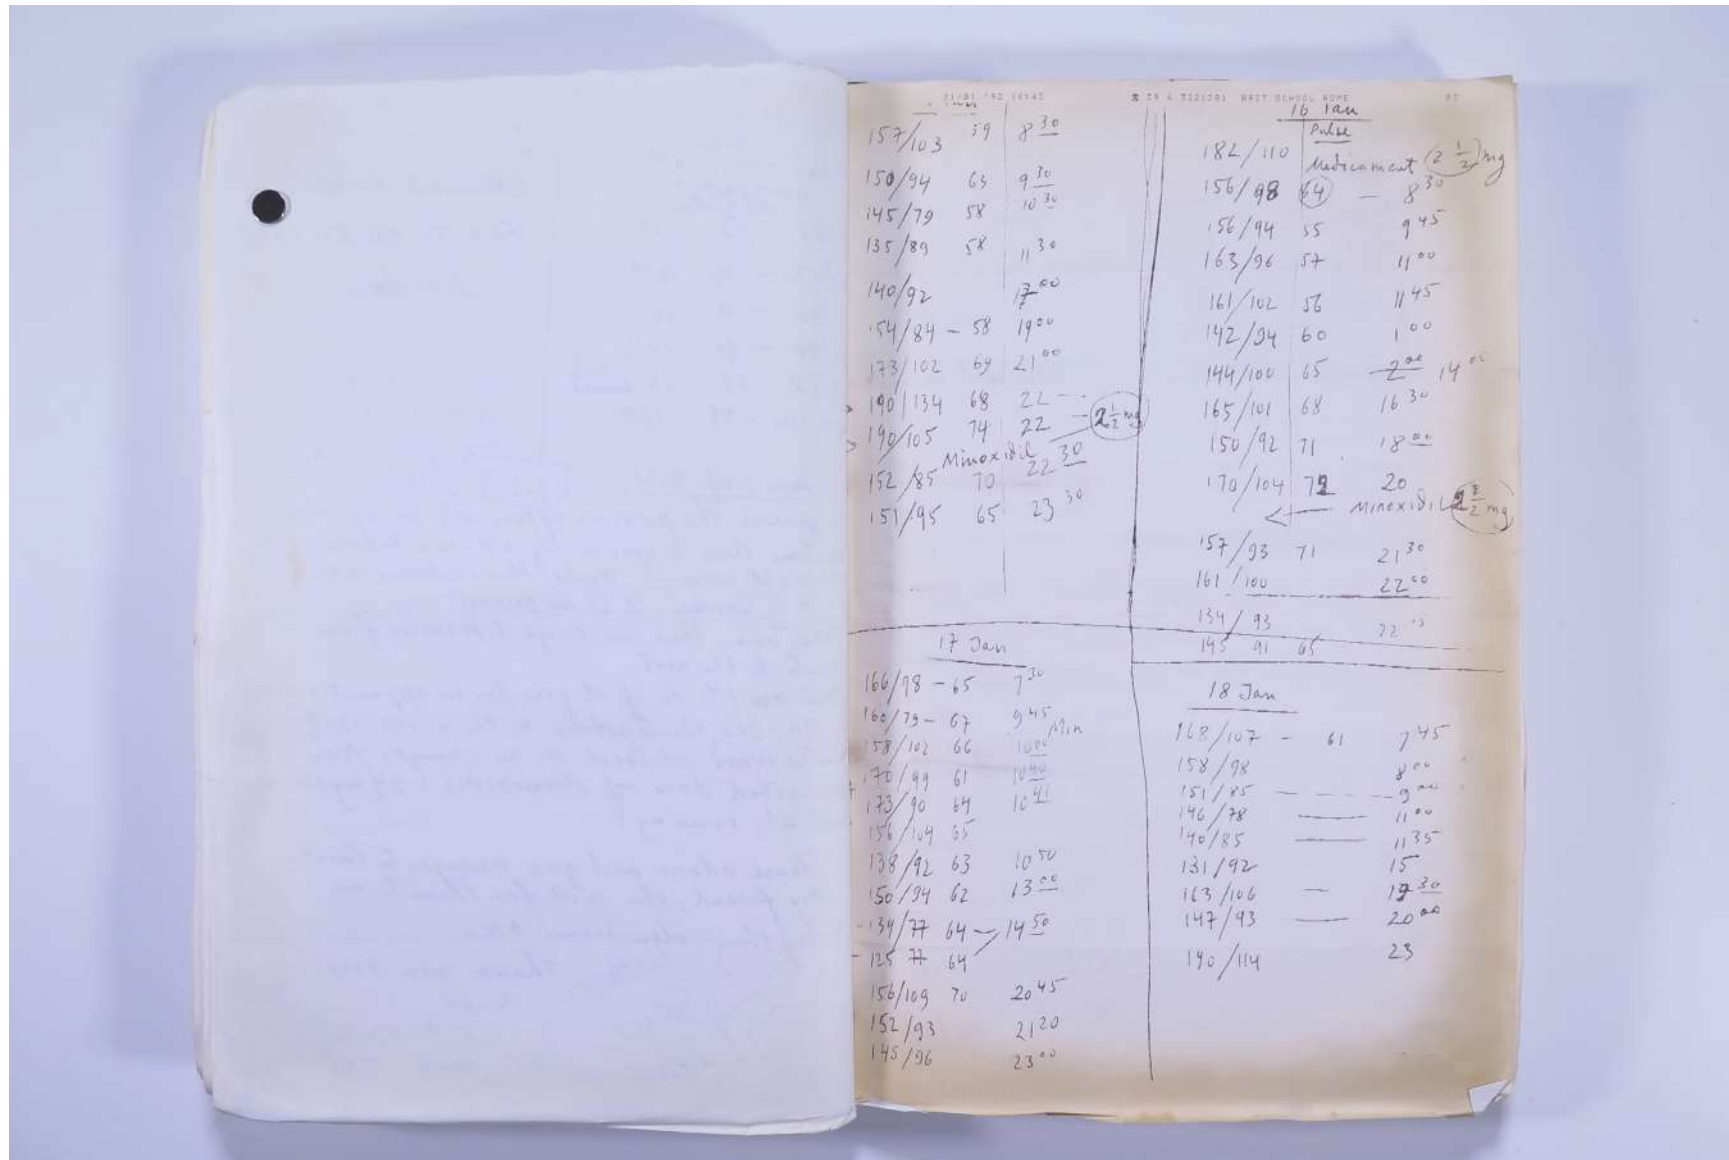 21/01 '92 16:45 39 6 5221301 BRIT SCHOOL ROME 02
Jan
157/103 59 8 30
150/94 63 9 30
145/79 58 10 30
135/89 58 11 30
140/92 17 00
154/84 - 58 19 00
173/102 69 21 00
190/134 68 22
190/105 74 22 2 1/2 mg
Minoxidil
152/85 70 22 30
151/95 65 23 30
16 Jan
Pulse
182/110
Medicament (2 1/2) mg
156/98 64 - 8 30
156/94 55 9 45
163/96 57 11 00
161/102 56 11 45
142/94 60 1 00
144/100 65 2 00 14 00
165/101 68 16 30
150/92 71 18 00
170/104 72 20
Minoxidil 2 1/2 mg
157/93 71 21 30
161/100 22 00
134/93 22 15
145 91 65
17 Jan
166/98 - 65 7 30
160/79 - 67 9 45
Min
158/102 66 10 00
170/99 61 10 40
173/90 64 10 41
156/104 65
138/92 63 10 50
150/94 62 13 00
139/77 64 - 14 50
125 77 64
156/109 70 20 45
152/93 21 20
145/96 23 00
18 Jan
168/107 - 61 7 45
158/98 8 00
151/85 - - - 9 00
146/78 — 11 00
140/85 — 11 35
131/92 15
163/106 - 19 30
147/93 — 20 00
190/114 23